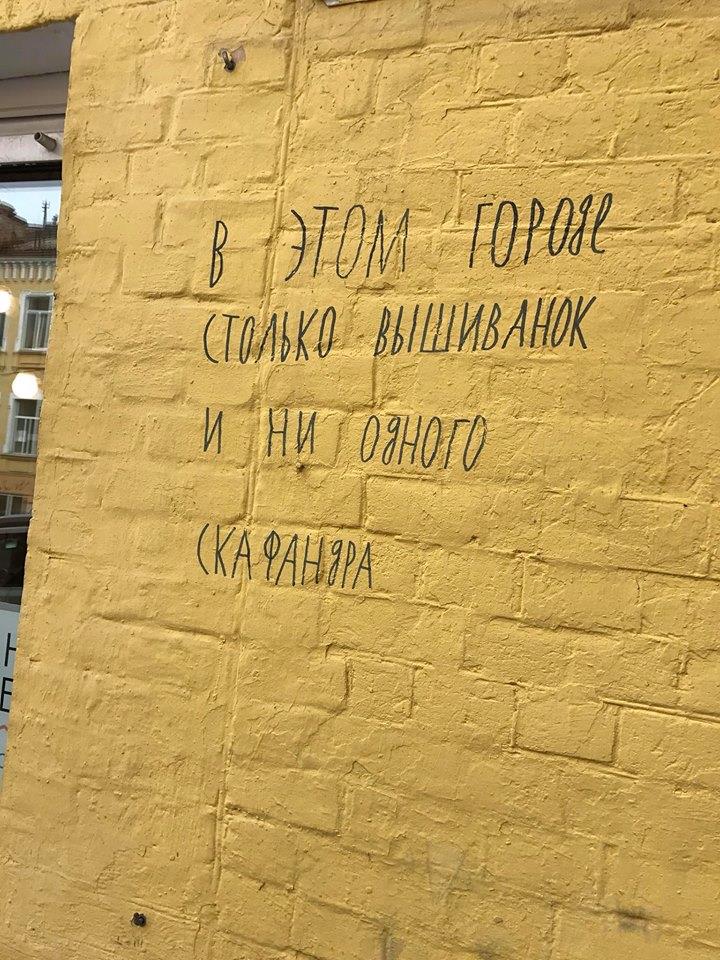 В ЭТОМ ГОРОДЕ
СТОЛЬКО ВЫШИВАНОК
И НИ ОДНОГО
СКАФАНДРА
Н
Е